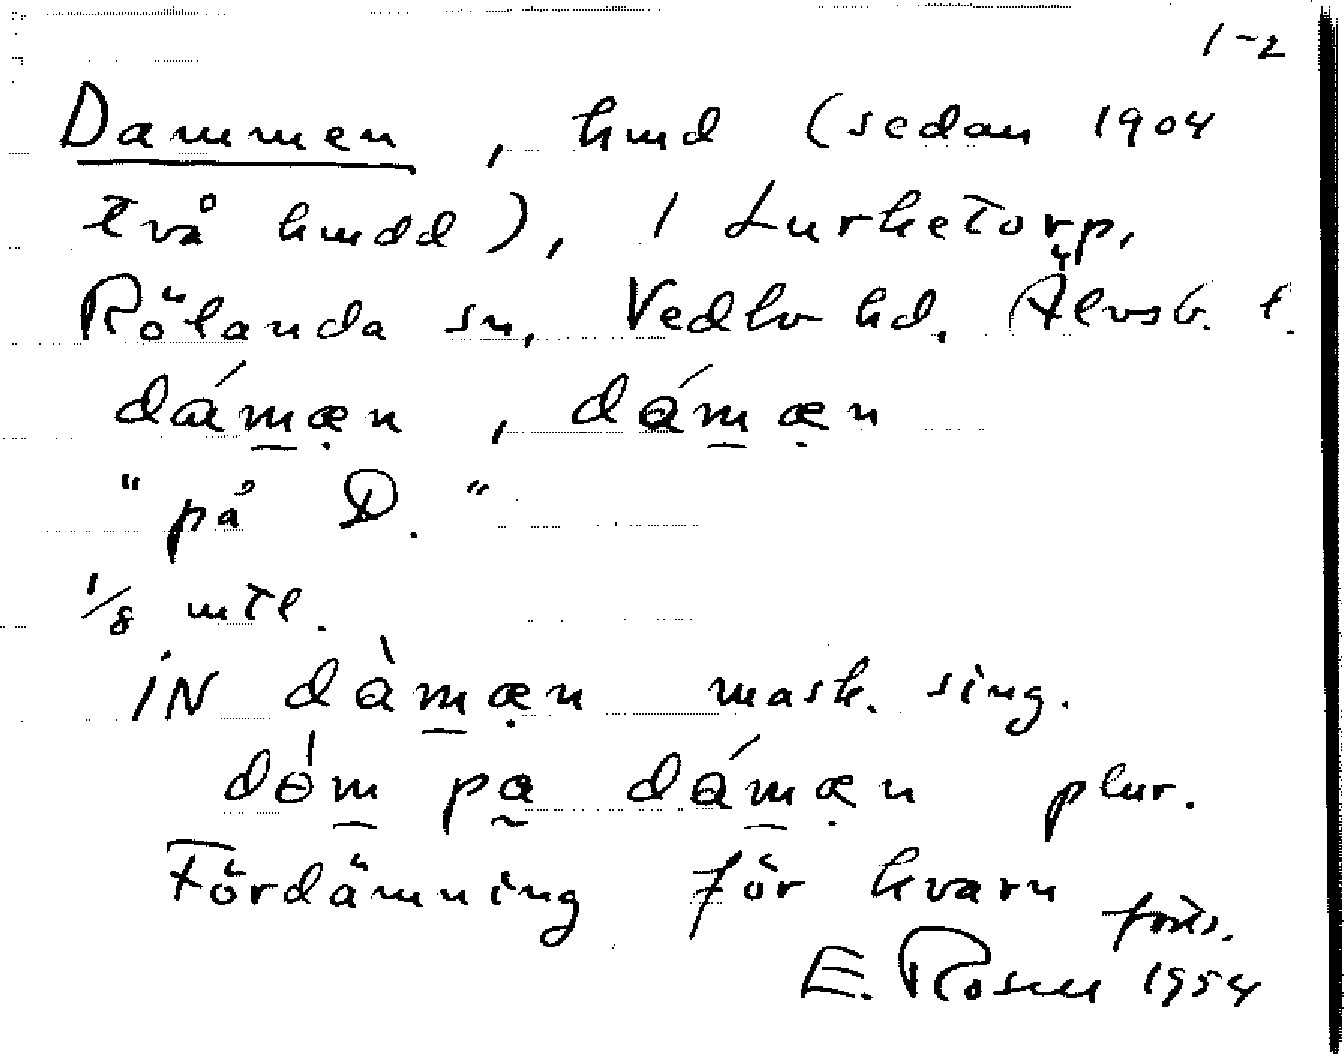 1-2
Dammen, hmd (sedan 1904
två hmdd), i Lurketorp,
Rölanda sn, Vedbo hd, Älvsb. l.
dám̲æ̣n, dám̲æ̣n
"på D."
1/8 mtl.
iN dàm̲æ̣n mask. sing.
dóm̲ pa̰ dám̲æ̣n plur.
Fördämning för kvarn
forts.
E. Rosell 1954